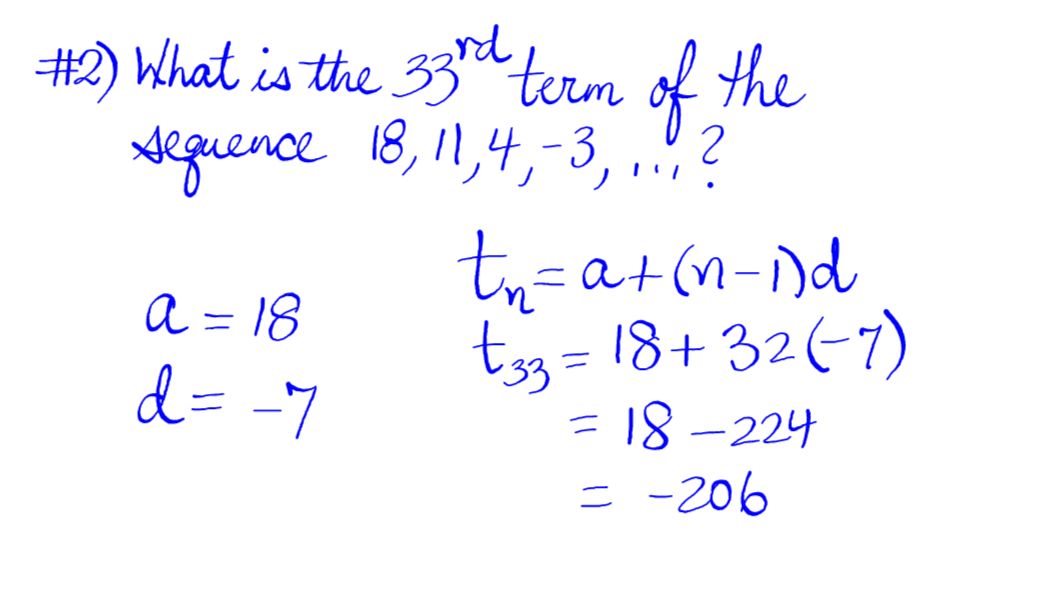 #2) What is the 33rd term of the
sequence 18, 11, 4, -3, ...?
a = 18
d = -7
tn = a + (n-1)d
t33 = 18 + 32(-7)
= 18 - 224
= -206